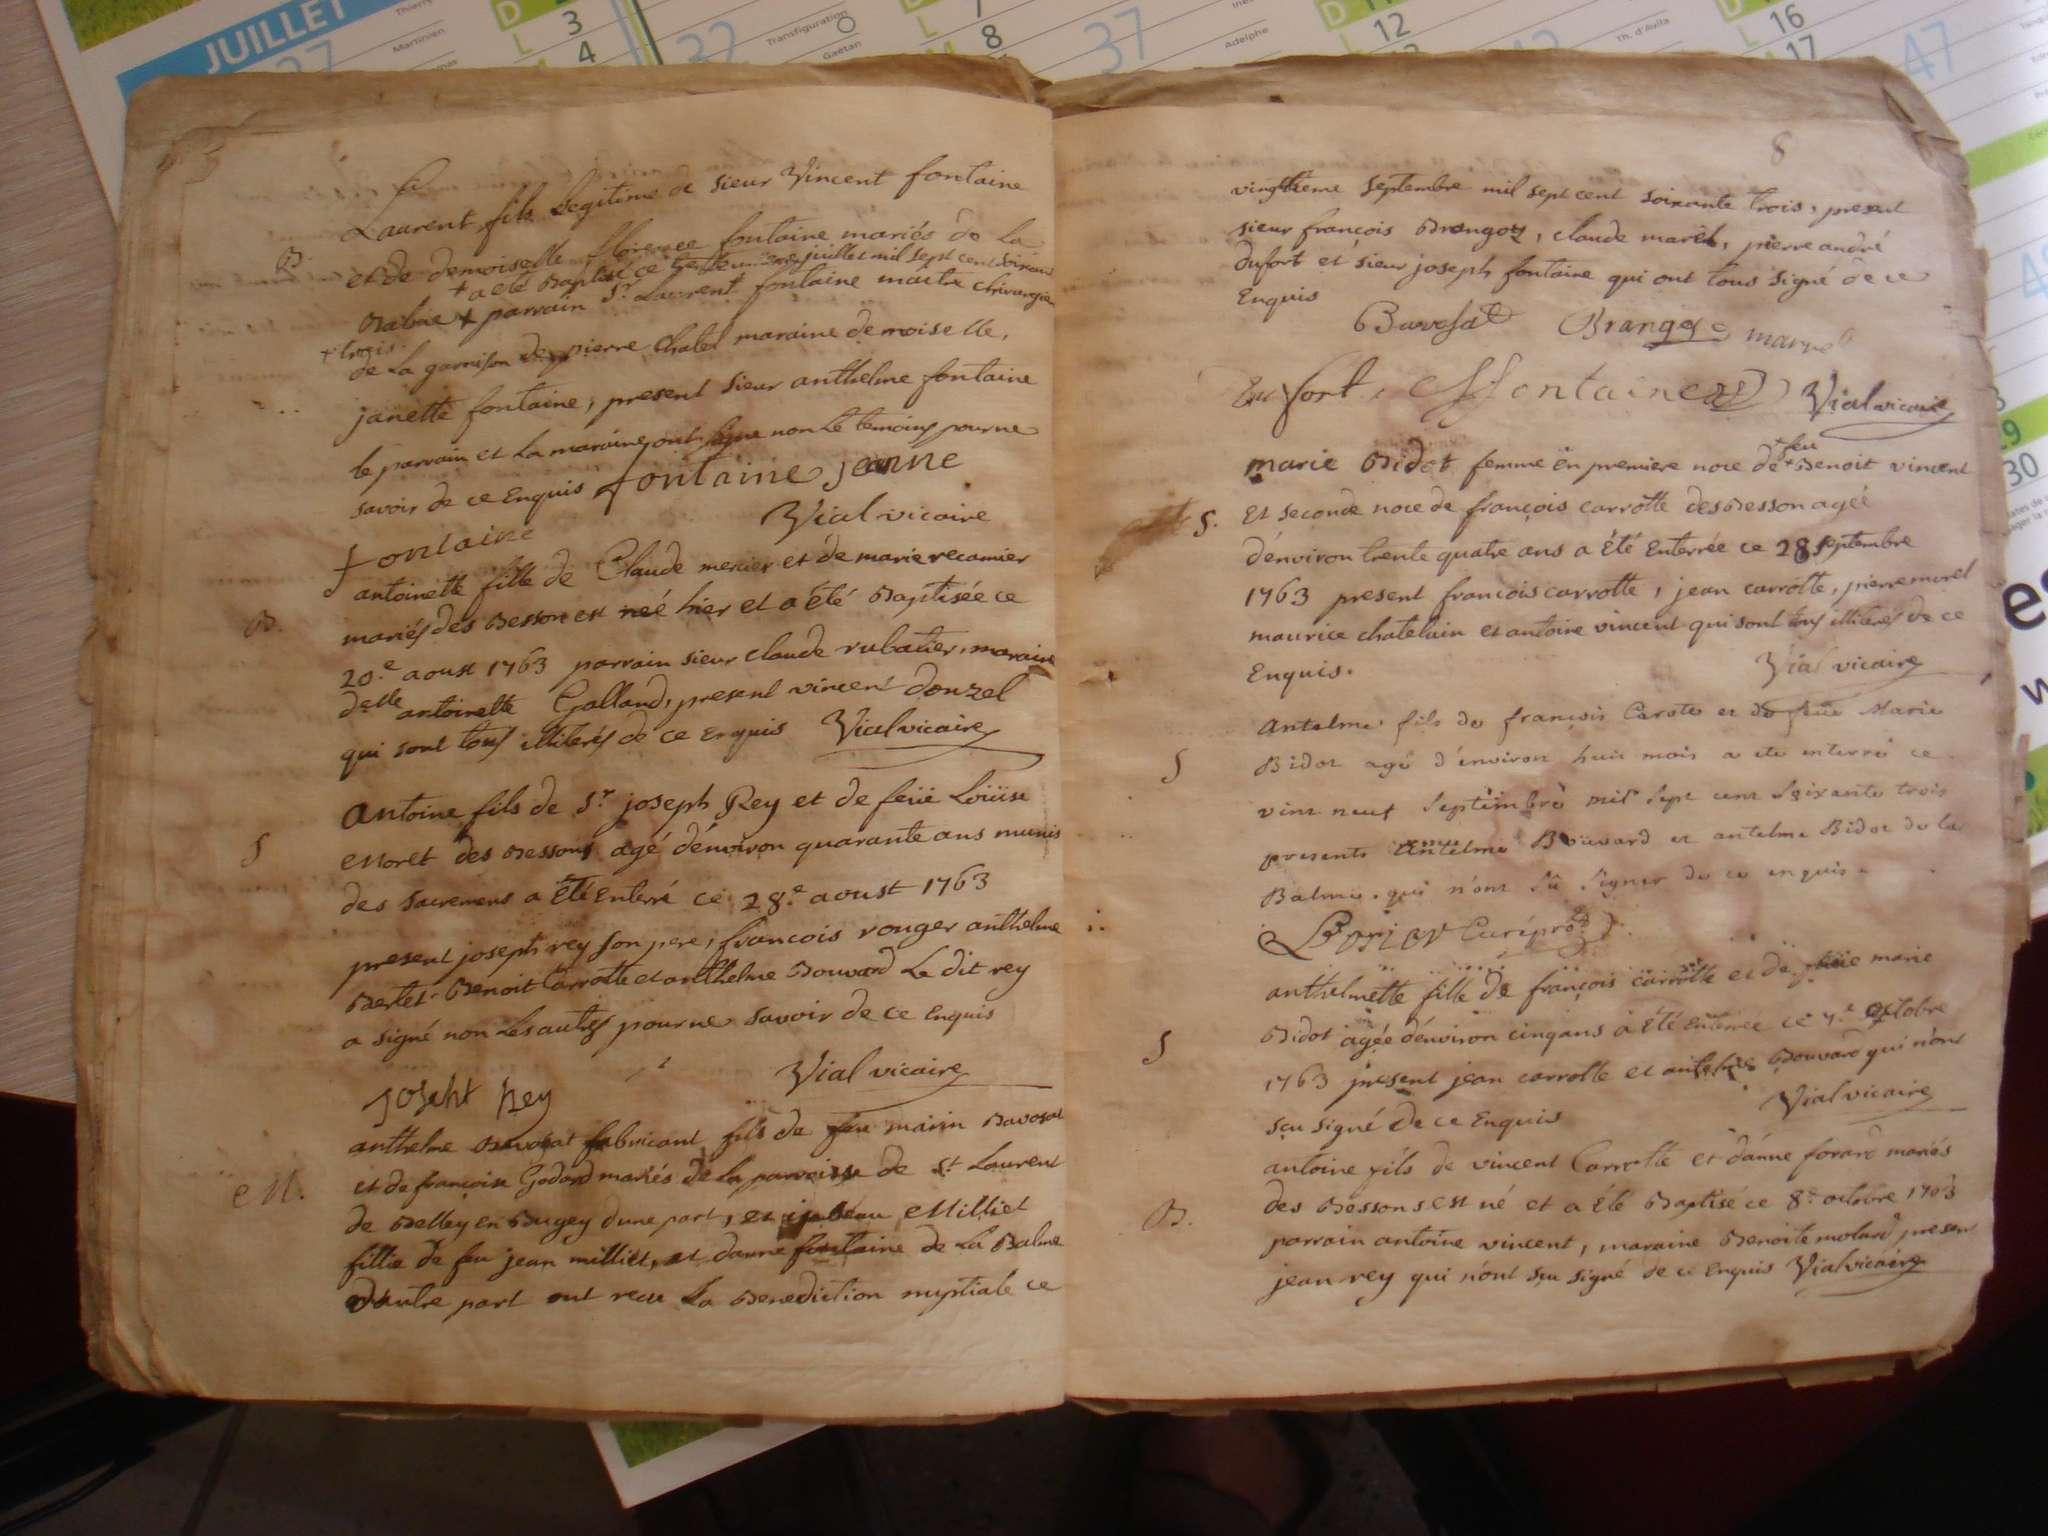 JUILLET
27
Martinien
3
4
32
Transfiguration
Gaëtan
8
37
Adelphe
12
Th. d'Avila
16
17
47
29
30
8
Laurent fils Legitime de sieur Vincent fontaine
B. et de demoiselle florence fontaine mariés de la
+ a eté Baptisé ce juillet mil sept cent soixante
Balme + parrain Sr. Laurent fontaine maitre chirurgien
+ trois.
de La garnison de pierre Chatel maraine demoiselle,
janette fontaine, present sieur anthelme fontaine
le parrain et La maraine ont signé non Le temoins pour ne
savoir de ce Enquis fontaine jeanne
fontaine Vial vicaire
antoinette fille de Claude mercier et de marie recamier
B. mariés des Besson est neé hier et a été Baptisée ce
20.e aoust 1763 parrain sieur claude rubatier, maraine
delle antoinette Galland, present vincent donzel
qui sont tous illiterés de ce enquis Vial vicaire
S Antoine fils de Sr. joseph Rey et de feüe Loüise
Moret des Bessons agé d'environ quarante ans munis
des sacremens a Eté Enterré ce 28.e aoust 1763
present joseph rey son pere, francois rouger anthelme
Bertet Benoit Carrotte et anthelme Bouvard Le dit rey
a signé non Les autres pour ne savoir de ce Enquis
Vial vicaire
Josepht Rey
anthelme Bavosat fabricant fils de feu marin Bavosat
M. et de françoise Godard mariés de La parroisse de St. Laurent
de Belley en Bugey d'une part, et isabeau Milliet
fillie de feu jean milliet, et d'anne fontaine de La Balme
D'autre part ont recu La Benediction nuptiale ce
vingtieme septembre mil sept cent soixante trois, present
sieur françois Brangoz, claude marel, pierre andré
dufort et sieur joseph fontaine qui ont tous signé de ce
Enquis
Bavosat Brange marel
Dufort fontaine Vial vicaire
+ feu
marie Bidot femme en premiere noce de + Benoit vincent
S. Et seconde noce de françois carrotte des Besson agée
d'environ trente quatre ans a été Enterrée ce 28 septembre
1763 present francois carrotte, jean carrotte, pierre morel
maurice chatelain et antoine vincent qui sont tous illiterés de ce
Enquis. Vial vicaire
Antelme fils de françois Carote et de feüe Marie
S Bidot agé d'environ huit mois a ete enterré ce
vint neuf Septembre mil sept cent soixante trois
presents antelme Boüvard et antelme Bidot de la
Balme. qui n'ont Sû Signer de ce enquis
Curé
anthelmette fille de françois carrotte et de feüe marie
Bidot agée d'environ cinq ans a été Enterrée ce 4.e octobre
S 1763 present jean carrotte et antelme Bouvard qui n'ont
sçu signé de ce Enquis Vial vicaire
antoine fils de vincent Carrotte et d'anne forard mariés
des Bessons est né et a été Baptisé ce 8.e octobre 1763
B. parrain antoine vincent, maraine Benoite molard present
jean rey qui n'ont sçu signé de ce Enquis Vial vicaire